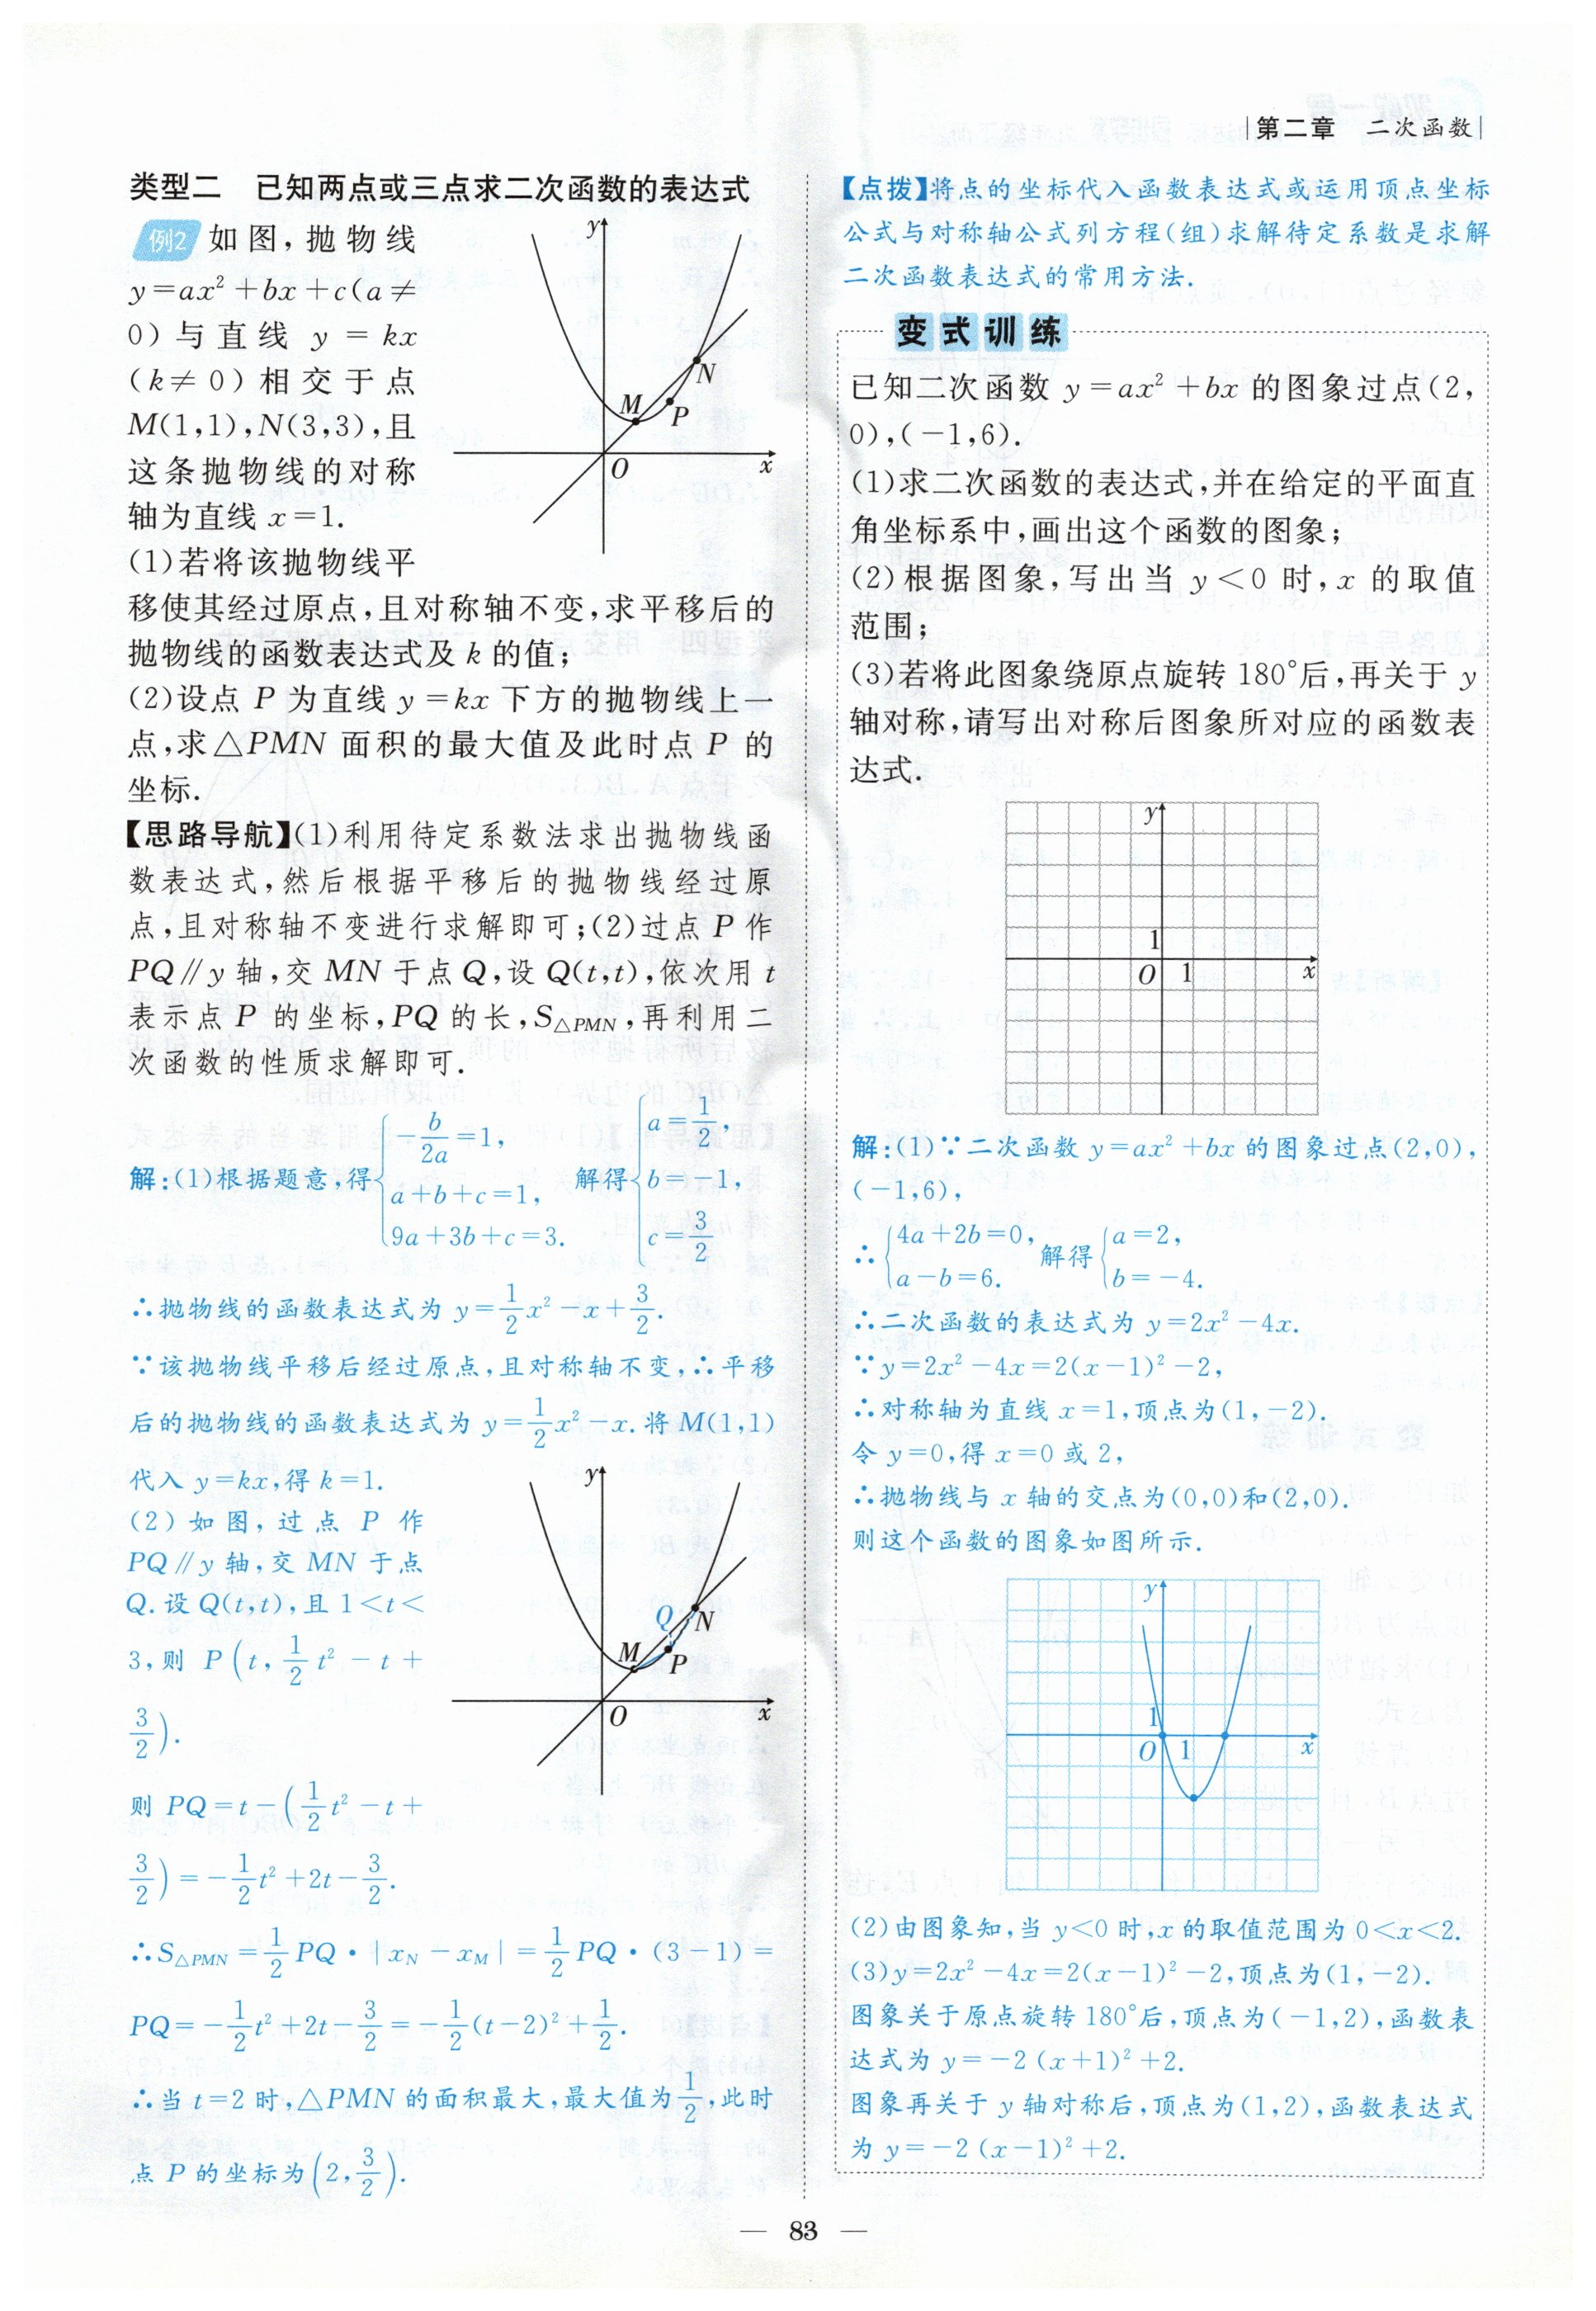 第二章 二次函数
类型二 已知两点或三点求二次函数的表达式
例2 如图,抛物线
y=ax²+bx+c(a≠
0)与直线 y=kx
(k≠0)相交于点
M(1,1),N(3,3),且
这条抛物线的对称
轴为直线 x=1.
(1)若将该抛物线平
移使其经过原点,且对称轴不变,求平移后的
抛物线的函数表达式及 k 的值;
(2)设点 P 为直线 y=kx 下方的抛物线上一
点,求△PMN 面积的最大值及此时点 P 的
坐标.
y
N
M
P
O
x
【思路导航】(1)利用待定系数法求出抛物线函
数表达式,然后根据平移后的抛物线经过原
点,且对称轴不变进行求解即可;(2)过点 P 作
PQ∥y 轴,交 MN 于点 Q,设 Q(t,t),依次用 t
表示点 P 的坐标,PQ 的长,S△PMN,再利用二
次函数的性质求解即可.
解:(1)根据题意,得{-b/2a=1, a+b+c=1, 9a+3b+c=3. 解得{a=1/2, b=-1, c=3/2
∴抛物线的函数表达式为 y=1/2x²-x+3/2.
∵该抛物线平移后经过原点,且对称轴不变,∴平移
后的抛物线的函数表达式为 y=1/2x²-x.将 M(1,1)
代入 y=kx,得 k=1.
(2)如图,过点 P 作
PQ∥y 轴,交 MN 于点
Q.设 Q(t,t),且 1<t<
3,则 P(t,1/2t²-t+
3/2).
则 PQ=t-(1/2t²-t+
3/2)=-1/2t²+2t-3/2.
y
Q
N
M
P
O
x
∴S△PMN=1/2PQ·|xN-xM|=1/2PQ·(3-1)=
PQ=-1/2t²+2t-3/2=-1/2(t-2)²+1/2.
∴当 t=2 时,△PMN 的面积最大,最大值为1/2,此时
点 P 的坐标为(2,3/2).
【点拨】将点的坐标代入函数表达式或运用顶点坐标
公式与对称轴公式列方程(组)求解待定系数是求解
二次函数表达式的常用方法.
变式训练
已知二次函数 y=ax²+bx 的图象过点(2,
0),(-1,6).
(1)求二次函数的表达式,并在给定的平面直
角坐标系中,画出这个函数的图象;
(2)根据图象,写出当 y<0 时,x 的取值
范围;
(3)若将此图象绕原点旋转 180°后,再关于 y
轴对称,请写出对称后图象所对应的函数表
达式.
y
1
O 1 x
解:(1)∵二次函数 y=ax²+bx 的图象过点(2,0),
(-1,6),
∴{4a+2b=0, a-b=6. 解得{a=2, b=-4.
∴二次函数的表达式为 y=2x²-4x.
∵y=2x²-4x=2(x-1)²-2,
∴对称轴为直线 x=1,顶点为(1,-2).
令 y=0,得 x=0 或 2,
∴抛物线与 x 轴的交点为(0,0)和(2,0).
则这个函数的图象如图所示.
y
1
O 1 x
(2)由图象知,当 y<0 时,x 的取值范围为 0<x<2.
(3)y=2x²-4x=2(x-1)²-2,顶点为(1,-2).
图象关于原点旋转 180°后,顶点为(-1,2),函数表
达式为 y=-2(x+1)²+2.
图象再关于 y 轴对称后,顶点为(1,2),函数表达式
为 y=-2(x-1)²+2.
— 83 —